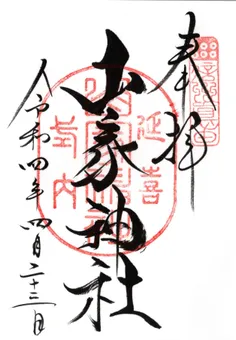 奉拝
山家神社
延喜
式内
令和四年四月二十三日